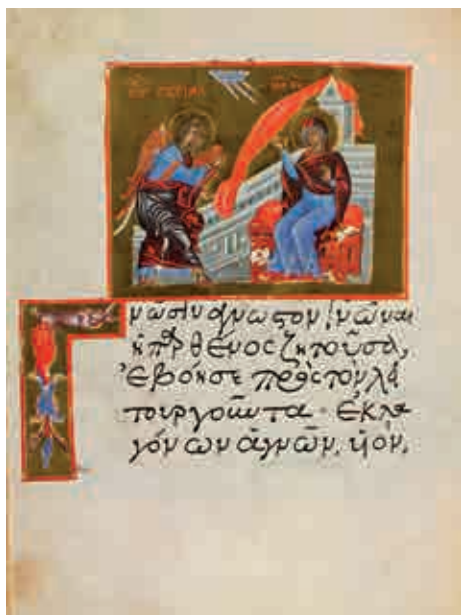 Γνῶσιν ἄγνωστον γνῶναι
ἡ πρθένος ζητοῦσα,
ἐβόησε πρὸς τὸν λει
τουργοῦντα· ἐκ λα
γόνων ἁγνῶν, υἱόν,